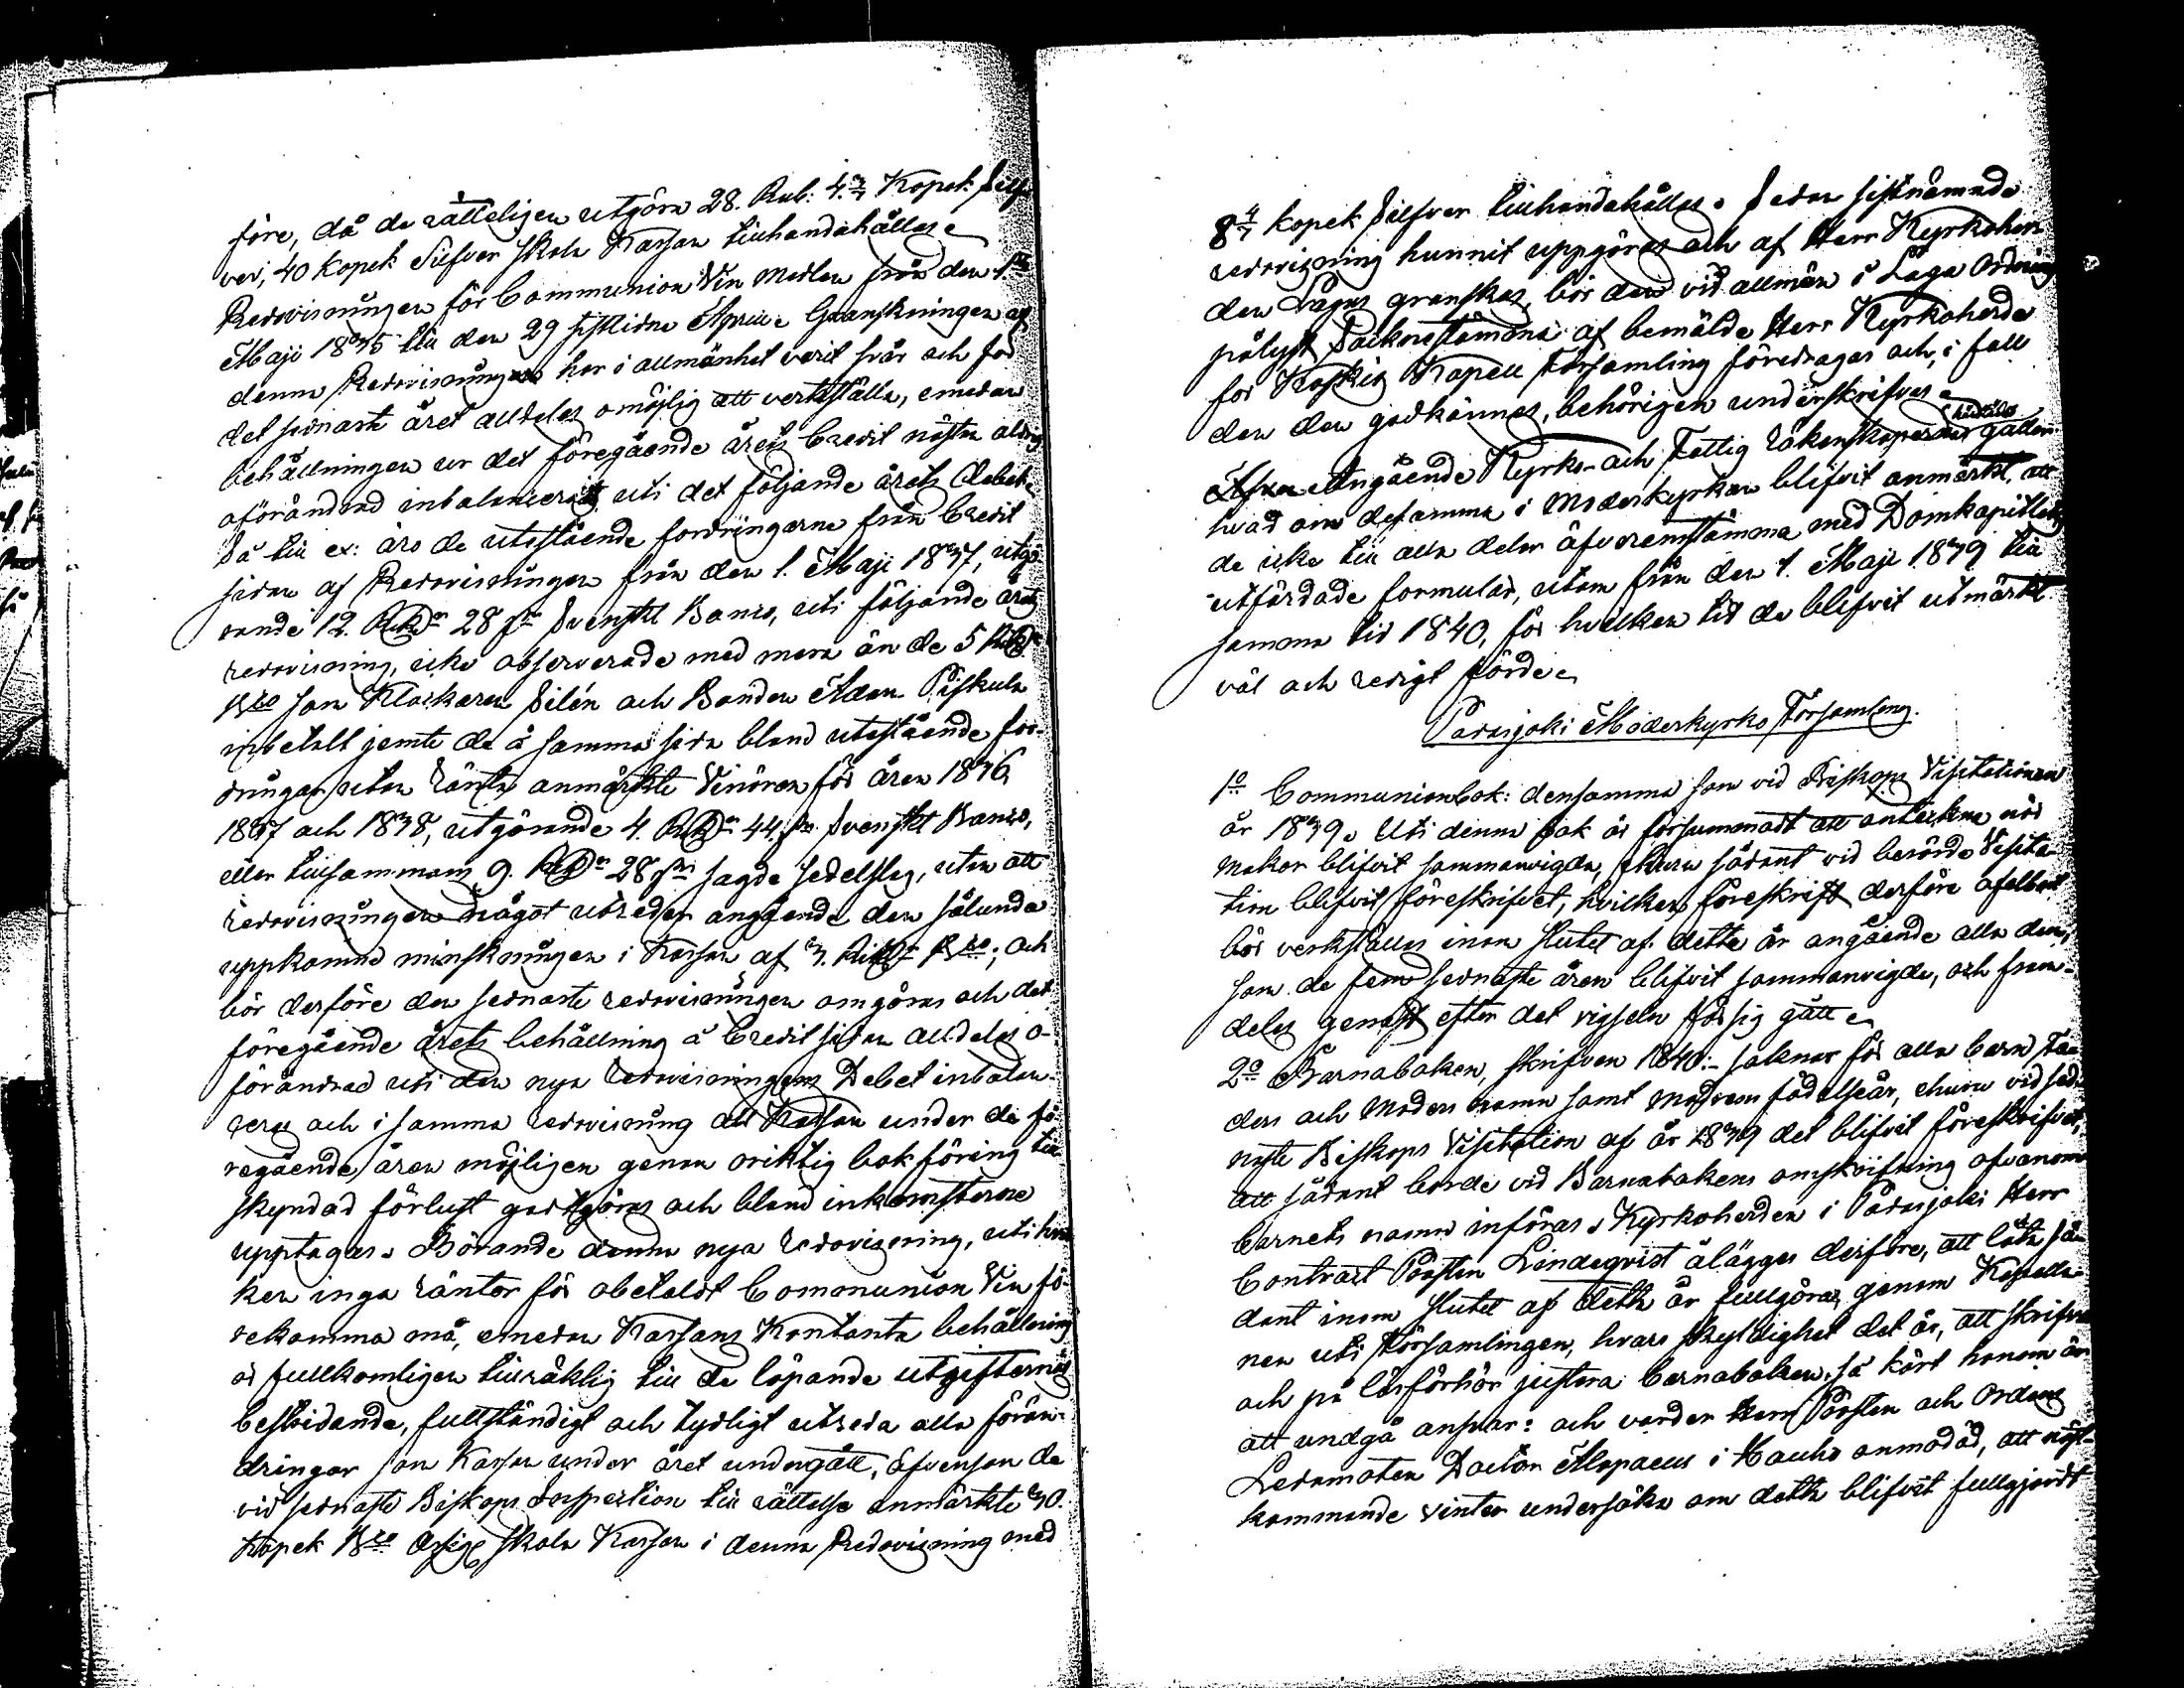 före, då de rätteligen utgöra 28. Rub: 4 3/7 Kopek Silf-
ver, 40 Kopek Silfver skola Kassan tillhandahållas.
Redovisningen för Communion Vin medlen från den 1.
Maji 1835 till den 29 sistlidne April. Granskningen af
denna Redovisning har i allmänhet varit svår och för
det sednaste året alldeles omöjlig att verkställa, emedan
behållningen ur det föregående årets Credit nästan aldrig
oförändrad inbalancerats uti det följande årets Debet.
Så till ex: äro de utestående fordringarne från Credit
sidan af Redovisningen från den 1. Maji 1837, utgö-
rande 12. RD 28 sk Svenskt Banco, uti följande årets
redovisning, icke observerade med mera än de 5 RD
Bco som Klockaren Silén och Bonden Adam Piskula
inbetalt jemte de å samma sida bland utestående for-
dringar utan ränta anmärkte Vinören för åren 1836,
1837 och 1838, utgörande 4. RD 44. sk Svenskt Banco,
eller tillsammans 9. RD 28 sk sagde sedelslag, utan att
redovisningen något utreder angående den sålunda
uppkomne minskningen i Kassan af 3. RD Bco; och
bör derföre den sednaste redovisningen omgöras och det
föregående årets behållning å Credit sidan alldeles o-
förändrad uti den nya redovisningens Debet inbalan-
ceras och i samma redovisning all Kassan under de fö-
regående åren möjligen genom oriktig bokföring till-
skyndad förlust godtgöras och bland inkomsterne
upptagas. Börande denna nya redovisning, uti hvil-
ken inga räntor för obetaldt Communion Vin fö-
rekomma må, emedan Kassans Kontanta behållning
är fullkomligen tillräklig till de löpande utgifternas
bestridande, fullständigt och tydligt utreda alla förän-
dringar som Kassan under året undergått, äfvensom de
vid sednaste Biskops Inspection till rättelse anmärkte 30.
Kopek Bco Assig. skola Kassan i denna Redovisning med
8 4/7 kopek Silfver tillhandahållas. Sedan sistnämnde
redovisning hunnit uppgöras och af Herr Kyrkoher-
den Lagus granskas, bör den vid allmän i Laga Ordning
pålyst Socknestämma af bemälde Herr Kyrkoherde
för Koskis Kapell Församling föredragas och, i fall
den der godkännes, behörigen underskrifvas.
Angående Kyrko- och Fattig räkenskaperne härstädes gäller
hvad om desamma i Moderkyrkan blifvit anmärkt, att
de icke till alla delar öfverensstämma med Domkapitlets
utfärdade formulär, utom från den 1. Maji 1839 till
samma tid 1840, för hvilken tid de blifvit utmärkt
väl och redigt förde.
Padasjoki Moderkyrko Församling.
1o Communionbok: densamma som vid Biskops Visitationen
år 1839. Uti denna bok är försummadt att anteckna när
makar blifvit sammanvigda, ehuru sådant vid berörde Visita-
tion blifvit föreskrifvet, hvilken föreskrift derföre ofelbart
bör verkställas inom slutet af dette år angående alla dem,
som de fem sednaste åren blifvit sammanvigde, och fram-
deles genast efter det vigseln för sig gått.
2o Barnaboken, skrifven 1840: saknar för alla barn Fa-
ders och Moders namn samt modrens födelseår, ehuru vid sed-
naste Biskops Visitation af år 1839 det blifvit föreskrifvet,
att sådant borde vid Barnabokens omskrifning ofvanom
barnets namn införas. Kyrkoherden i Padasjoki Herr
Contract Prosten Lindeqvist ålägges derföre, att låta så-
dant inom slutet af detta år fullgöras genom Kapella-
nen uti Församlingen, hvars skyldighet det är, att skrifva
och på läsförhör justera barnaboken, så kärt honom är
att undgå ansvar: och varder Herr Prosten och Ordens
Ledamoten Doctor Alopaeus i Hauho anmodad, att näst-
kommande vinter undersöka om detta blifvit fullgjordt